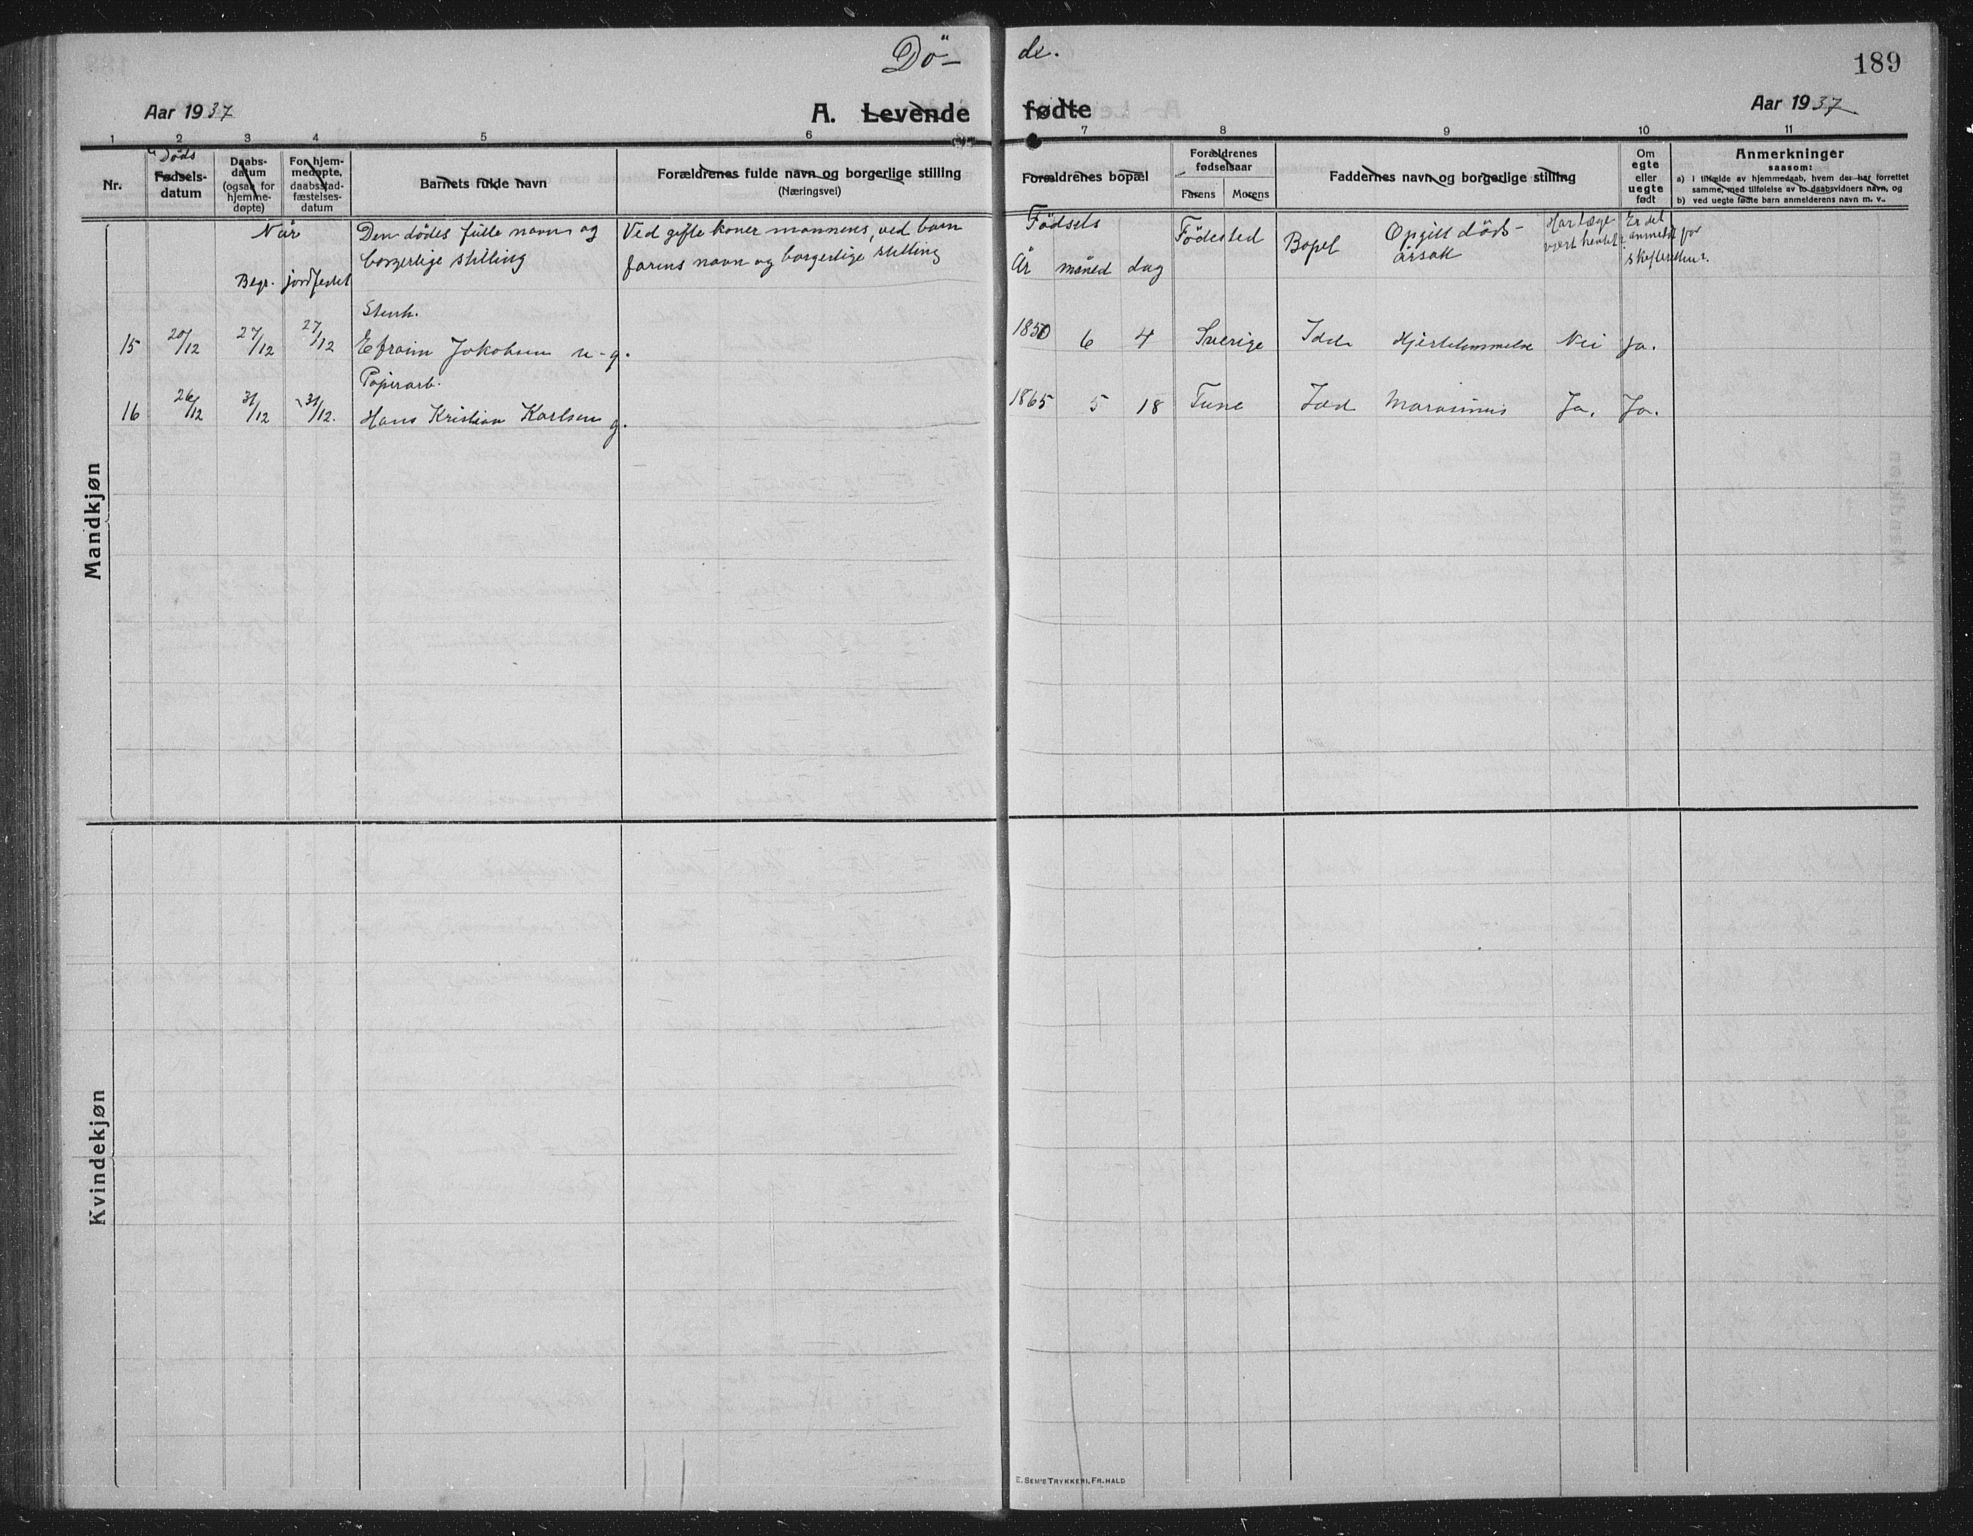 Dö-
de.
189
Aar 1937
A. Levende
fødte
Aar 1937
1 2 3 4 5 6 7 8 9 10 11
Nr.
Døds
Fødsels-
datum
Daabs-
datum
(ogsaa for
hjemme-
døpte)
For hjem-
medøpte,
daabsstad-
fæstelses-
datum
Barnets fulde navn
Forældrenes fulde navn og borgerlige stilling
(Næringsvei)
Forældrenes bopæl
Forældrenes
fødselsaar
Farens Morens
Faddernes navn og borgerlige stilling
Om
egte
eller
uegte
født
Anmerkninger
saasom:
a) I tilfælde av hjemmedaab, hvem der har forrettet
samme, med tilføielse av to daabsvidners navn, og
b) ved uegte fødte barn anmelderens navn m. v..
Når
Begr. jordfestet
Den dødes fulle navn og
borgerlige stilling
Ved gifte koner mannens, ved barn
farens navn og borgerlige stilling
Fødsels
År måned dag
Fødested
Bopel
Opgitt døds-
årsak
Har læge
vært hentet?
Er det
anmeldt for
skifteretten?
Stenh.
15 20/12 27/12 27/12 Efraim Jakobsen u-g. 1850 6 4 Sverige Idd Hjertelammelse Nei Ja.
Papirarb.
16 26/12 31/12 31/12. Hans Kristian Karlsen g. 1865 5 18 Tune Idd Marasmus Ja. Ja.
Mandkjøn
Kvindekjøn
E. SEM'S TRYKKERI, FR.HALD